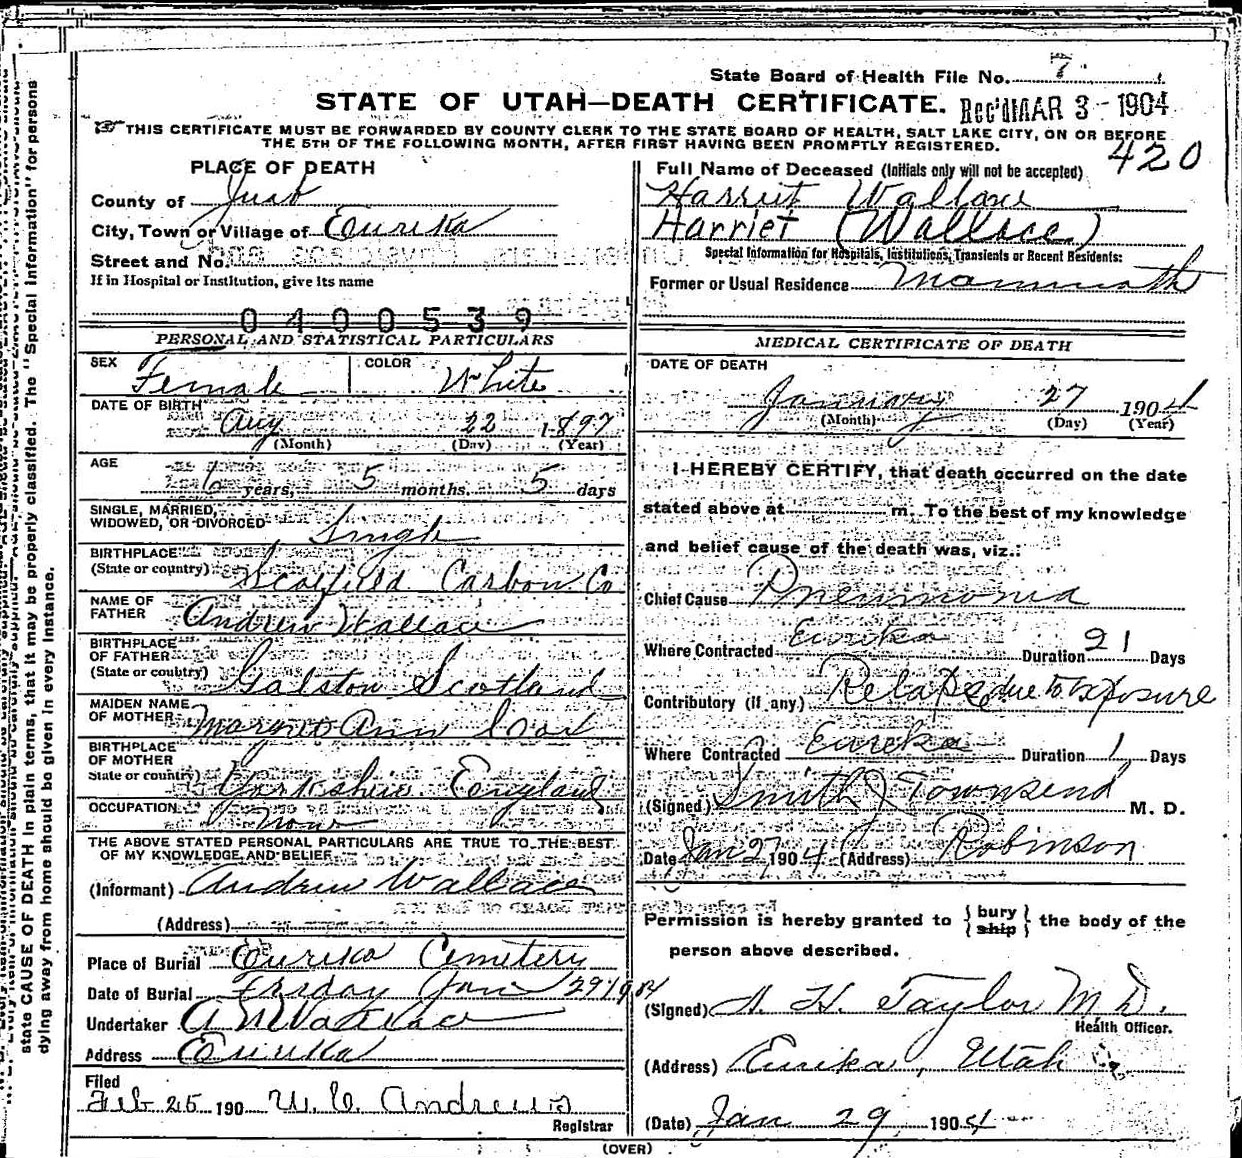 State Board of Health File No. 7
STATE OF UTAH—DEATH CERTIFICATE. Rec'd MAR 3 - 1904
THIS CERTIFICATE MUST BE FORWARDED BY COUNTY CLERK TO THE STATE BOARD OF HEALTH, SALT LAKE CITY, ON OR BEFORE
THE 5TH OF THE FOLLOWING MONTH, AFTER FIRST HAVING BEEN PROMPTLY REGISTERED.
420
PLACE OF DEATH
County of Juab
City, Town or Village of Eureka
Street and No.
If in Hospital or Institution, give its name
0400539
Full Name of Deceased (Initials only will not be accepted)
Harriet Wallace
Harriet (Wallace)
Special Information for Hospitals, Institutions, Transients or Recent Residents:
Former or Usual Residence Mammoth
PERSONAL AND STATISTICAL PARTICULARS
SEX Female COLOR White
DATE OF BIRTH Aug 22 1897
(Month) (Day) (Year)
AGE
6 years, 5 months, 5 days
SINGLE, MARRIED,
WIDOWED, OR DIVORCED Single
BIRTHPLACE
(State or country) Scofield Carbon Co
NAME OF
FATHER Andrew Wallace
BIRTHPLACE
OF FATHER
(State or country) Galston Scotland
MAIDEN NAME
OF MOTHER Ann
BIRTHPLACE
OF MOTHER
State or country) Yorkshire England
OCCUPATION
None
THE ABOVE STATED PERSONAL PARTICULARS ARE TRUE TO THE BEST
OF MY KNOWLEDGE AND BELIEF
(Informant) Andrew Wallace
(Address)
Place of Burial Eureka Cemetery
Date of Burial Friday Jan 29 1904
Undertaker A N Wallace
Address Eureka
Filed
Feb 25 190 W. C. Andrews
Registrar
MEDICAL CERTIFICATE OF DEATH
DATE OF DEATH
January 27 1904
(Month) (Day) (Year)
I HEREBY CERTIFY, that death occurred on the date
stated above at m. To the best of my knowledge
and belief cause of the death was, viz.:
Chief Cause Pneumonia
Where Contracted Eureka Duration 21 Days
Contributory (if any) Relapse due to Exposure
Where Contracted Eureka Duration 1 Days
(Signed) Smith J Townsend M. D.
Date Jan 27 1904 (Address) Robinson
Permission is hereby granted to { bury ship } the body of the
person above described.
(Signed) H. Taylor M D.
Health Officer.
(Address) Eureka, Utah
(Date) Jan 29 1904
(OVER)
state CAUSE OF DEATH in plain terms, that it may be properly classified. The "Special Information" for persons
dying away from home should be given in every instance.